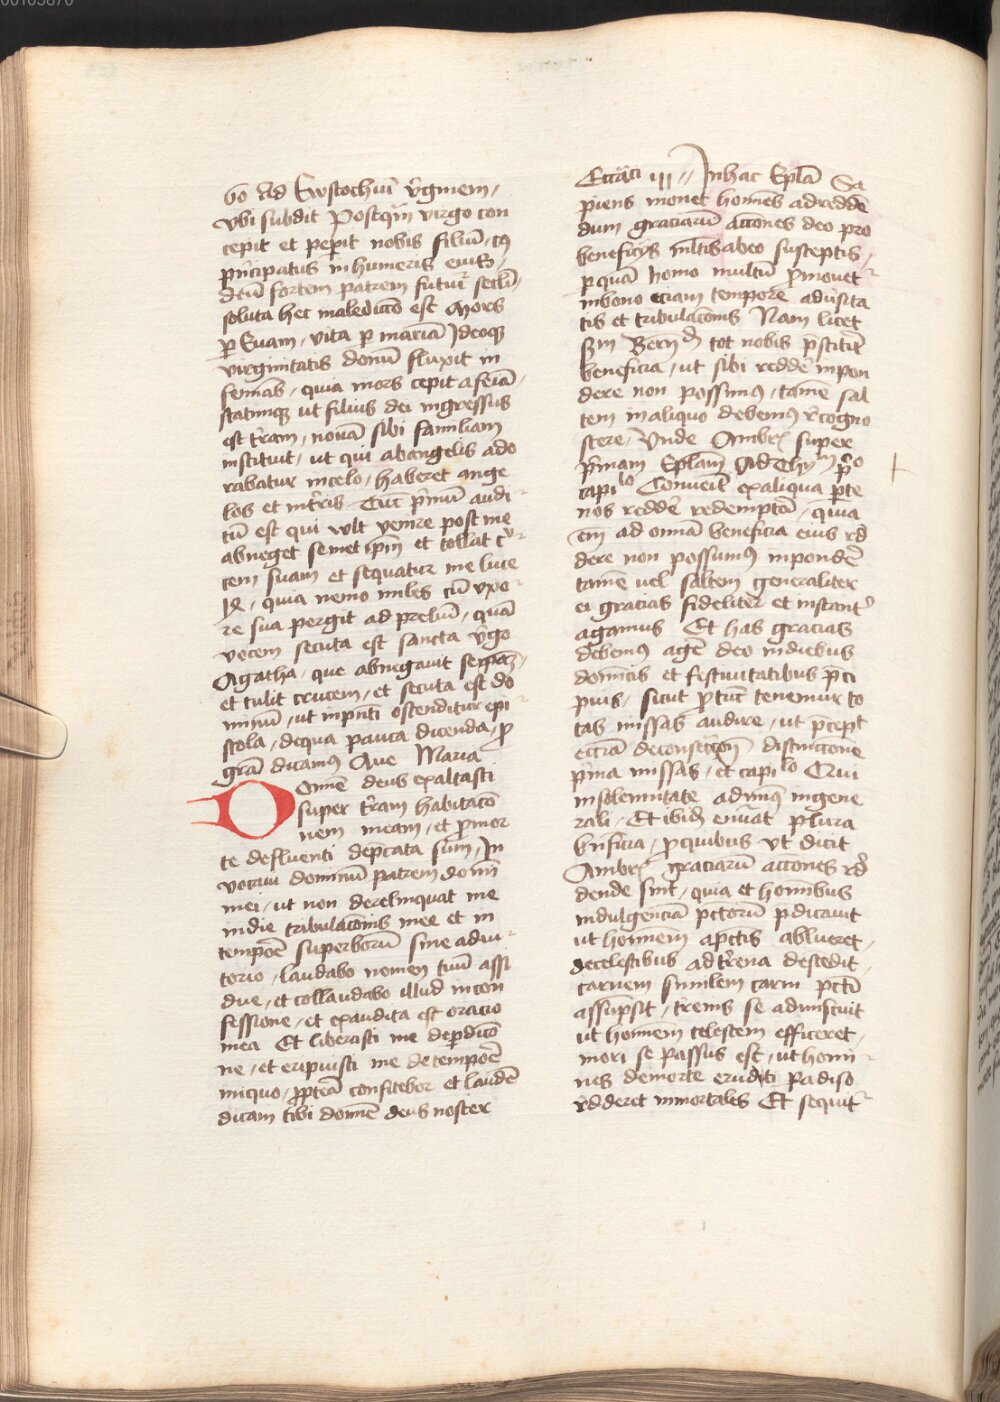 00103870
bo Ad Ewstochiū v̄ginem /
vbi subdit Postq̄m virgo con
cepit et pep̄it nobis filiū / cꝯ
p̄ncipatus in humeris eius /
deū fortem patrem futuri secli /
soluta hec maledicc̄o est Mors
ꝑ Euam / vita ꝑ mariā Ideoqꝫ
virginitatis donū fluxit in
feminas / quia mors cepit a feīa /
statimqꝫ ut filius dei ingressus
est t̄ram / nouā sibi familiam
instituit / ut qui ab angelis ado
rabatur in celo / haberet ange
los et in t̄ris Tūc p̄mū audi
tū est qui vult venire post me
abneget semet ip̄m et tollat cͬu
cem suam et sequatur me luce
ix / quia nemo miles cū vxo
re sua pergit ad preliū / quā
vocem secuta est sancta v̄go
Agatha / que abnegauit
et tulit crucem / et secuta est do
minū / ut in p̄nti ostenditur epi
stola / de qua pauca dicenda / ꝓ
gr̄a dicamꝯ Aue Maria
Domīe deus exaltasti
super t̄ram habitac̄o
nem meam / et ꝓ mor
te defluenti dep̄cata sum / In
vocaui dominū patrem domī
mei / ut non derelinquat me
in die tribulac̄onis mee et in
tempoē superborū sine adiu
torio / laudabo nomen tuū assi
due / et collaudabo illud in con
fessione / et exaudita est oracio
mea Et liberasti me de ꝑdic̄o
ne / et eripuisti me de tempoē
iniquo / ꝓpt̄ea confitebor et laudē
dicam tibi domīe deus noster
Eccāci iij // In hac Ep̄la Sa
piens monet homīes ad redde
dum graciarū acc̄ones deo pro
beneficijs ml̄tis ab eo susceptis /
ꝑ quā homo multū ꝓmouet
in bono eciam tempore adūsita
tis et tribulac̄onis Nam licet
sm̄ Bern̄ tot nobis p̄stitit
beneficia / ut sibi reddē in pon
dere non possimꝯ / tamē sal
tem in aliquo debemꝯ r̄cogno
scere / Vnde Ambr̄ super
p̄mam Ep̄lam Ad Thyᵐ p̄ᵒ
capiˡᵒ Conueīt ex aliqua ꝑte
nos reddē redemptōi / quia
em̄ ad om̄ia beneficia eius rd̄
dere non possumꝯ in pondē
tamē uel saltem generaliter
ei gracias fideliter et instant᷑
agamus Et has gracias
debemꝯ agē deo in diebus
domīcis et festiuitatibus p̄ci
puis / sicut ꝓ tūc tenemur to
tas missas audire / ut p̄cept
eccīa de consec̄one distinccione
p̄ma missas / et capiˡᵒ Qui
in solemnitate adimꝯ in gene
rali / Et ibid̄ enūat plura
b̄nficia / ꝓ quibus vt dicit
Ambr̄ graciarū acc̄ones rd̄
dende sint / quia et homībus
indulgenciā pctorū p̄dicauit
ut homīem a pcc̄tis ablueret /
de celestibus ad t̄rena descēdit /
carnem similem carni pctī
assūpsit / t̄renis se admiscuit
ut homīem celestem efficeret /
mori se passus est / ut homi
nes de morte erudīti padiso
rd̄deret inmortales Et sequit᷑